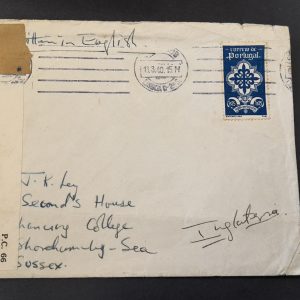 written in English
11.3.40.15 H
CORREIO DE
Portugal
J. K. Ley
Second's House
Lancing College
Shoreham-by-Sea
Sussex.
Inglaterra.
P.C. 66